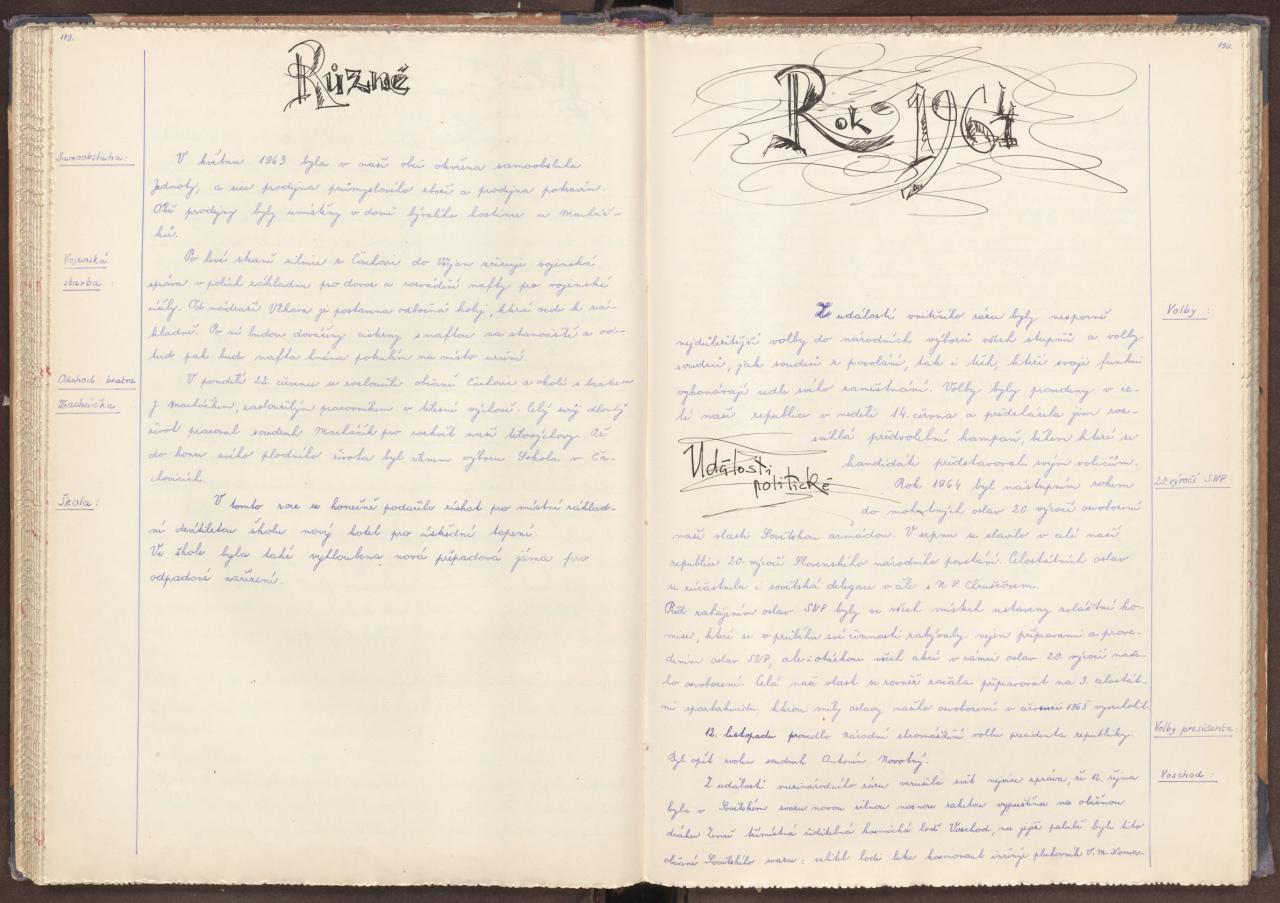 189.
Různé
Samoobsluha:
V květnu 1963 byla v naší obci otevřena samoobsluha
Jednoty, a sice prodejna průmyslového zboží a prodejna potravin.
Obě prodejny byly umístěny v domě bývalého hostince u Macháč-
ků.
Vojenská
stavba:
Po levé straně silnice z Čachovic do Všejan zřizuje vojenská
správa v polích základnu pro dovoz a rozvádění nafty pro vojenské
účely. Od nádraží Vlkava je postavena odbočná kolej, která vede k zá-
kladně. Po ní budou dováženy cisterny s naftou na stanoviště a od-
tud pak bude nafta hnána potrubím na místo určení.
Odchod bratra
Macháčka
V pondělí 22. července se rozloučili občané Čachovic a okolí s bratrem
J. Macháčkem, zasloužilým pracovníkem v tělesné výchově. Celý svůj dlouhý
život pracoval soudruh Macháček pro rozkvět naší tělovýchovy. Až
do konce svého plodného života byl členem výboru Sokola v Ča-
chovicích.
Škola:
V tomto roce se konečně podařilo získat pro místní základ-
ní devítiletou školu nový kotel pro ústřední topení.
Ve škole byla také vyhloubena nová přepadová jáma pro
odpadové zařízení.
190.
Rok 1964
Volby:
Z událostí vnitřního rázu byly nesporně
nejdůležitější volby do národních výborů všech stupňů a volby
soudců, jak soudců z povolání, tak i těch, kteří svoji funkci
vykonávají vedle svého zaměstnání. Volby byly provedeny v ce-
lé naší republice v neděli 14. června a předcházela jim roz-
sáhlá předvolební kampaň, během které se
kandidáti představovali svým voličům.
Události
politické
20. výročí SNP
Rok 1964 byl nástupním rokem
do mohutných oslav 20. výročí osvobození
naší vlasti Sovětskou armádou. V srpnu se slavilo v celé naší
republice 20. výročí Slovenského národního povstání. Celostátních oslav
se zúčastnila i sovětská delegace v čele s N. S. Chruščovem.
Před zahájením oslav SNP byly ve všech místech ustaveny zvláštní ko-
mise, které se v průběhu své činnosti zabývaly nejen přípravami a prove-
dením oslav SNP, ale i otázkou všech akcí v rámci oslav 20. výročí naše-
ho osvobození. Celá naše vlast se rovněž začala připravovat na 3. celostát-
ní spartakiádu, kterou měly oslavy našeho osvobození v červenci 1965 vyvrcholit.
Volby presidenta:
12. listopadu provedlo Národní shromáždění volbu presidenta republiky.
Byl opět zvolen soudruh Antonín Novotný.
Voschod:
Z událostí mezinárodního rázu vzrušila svět nejvíce zpráva, že 12. října
byla v Sovětském svazu novou silnou nosnou raketou vypuštěna na oběžnou
dráhu Země třímístná řiditelná kosmická loď Voschod, na jejíž palubě byli tito
občané Sovětského svazu: velitel lodi letec kosmonaut inženýr plukovník V. M. Koma-